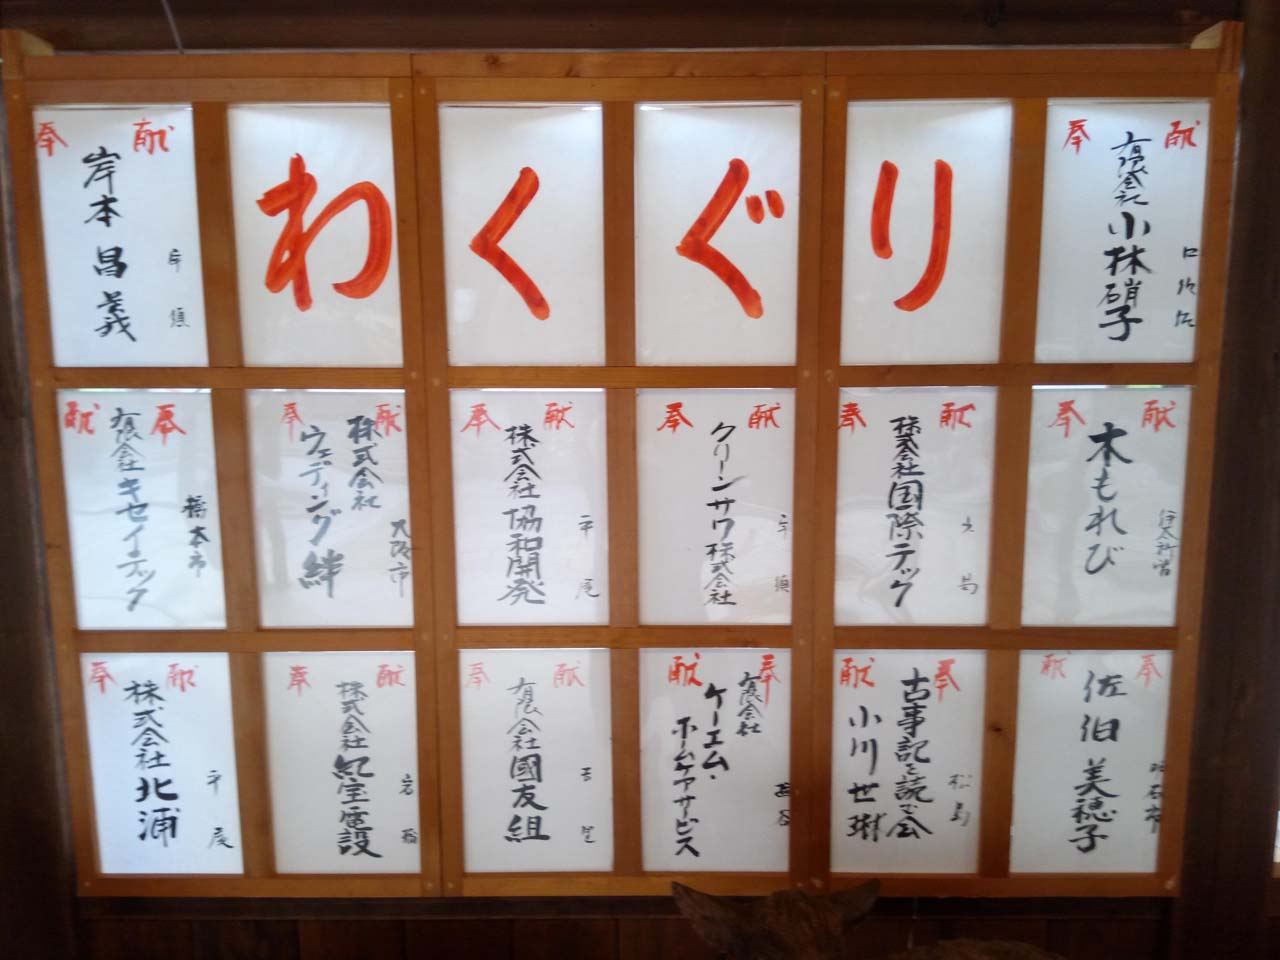 わくぐり
奉献
岸本昌義
奉献
有限会社
小林硝子
献奉
有限会社キセイテック
橋本市
奉献
株式会社
ウェディング絆
大阪市
奉献
株式会社協和開発
平尾
奉献
クリーンサワ株式会社
奉献
株式会社国際テック
奉献
木もれび
伊太祈曽
奉献
株式会社北浦
平尾
奉献
株式会社紀宝電設
奉献
有限会社國友組
献奉
有限会社
ケーエム・
ホームケアサービス
献奉
古事記を読む会
小川世
松島
献奉
佐伯美穂子
明石市